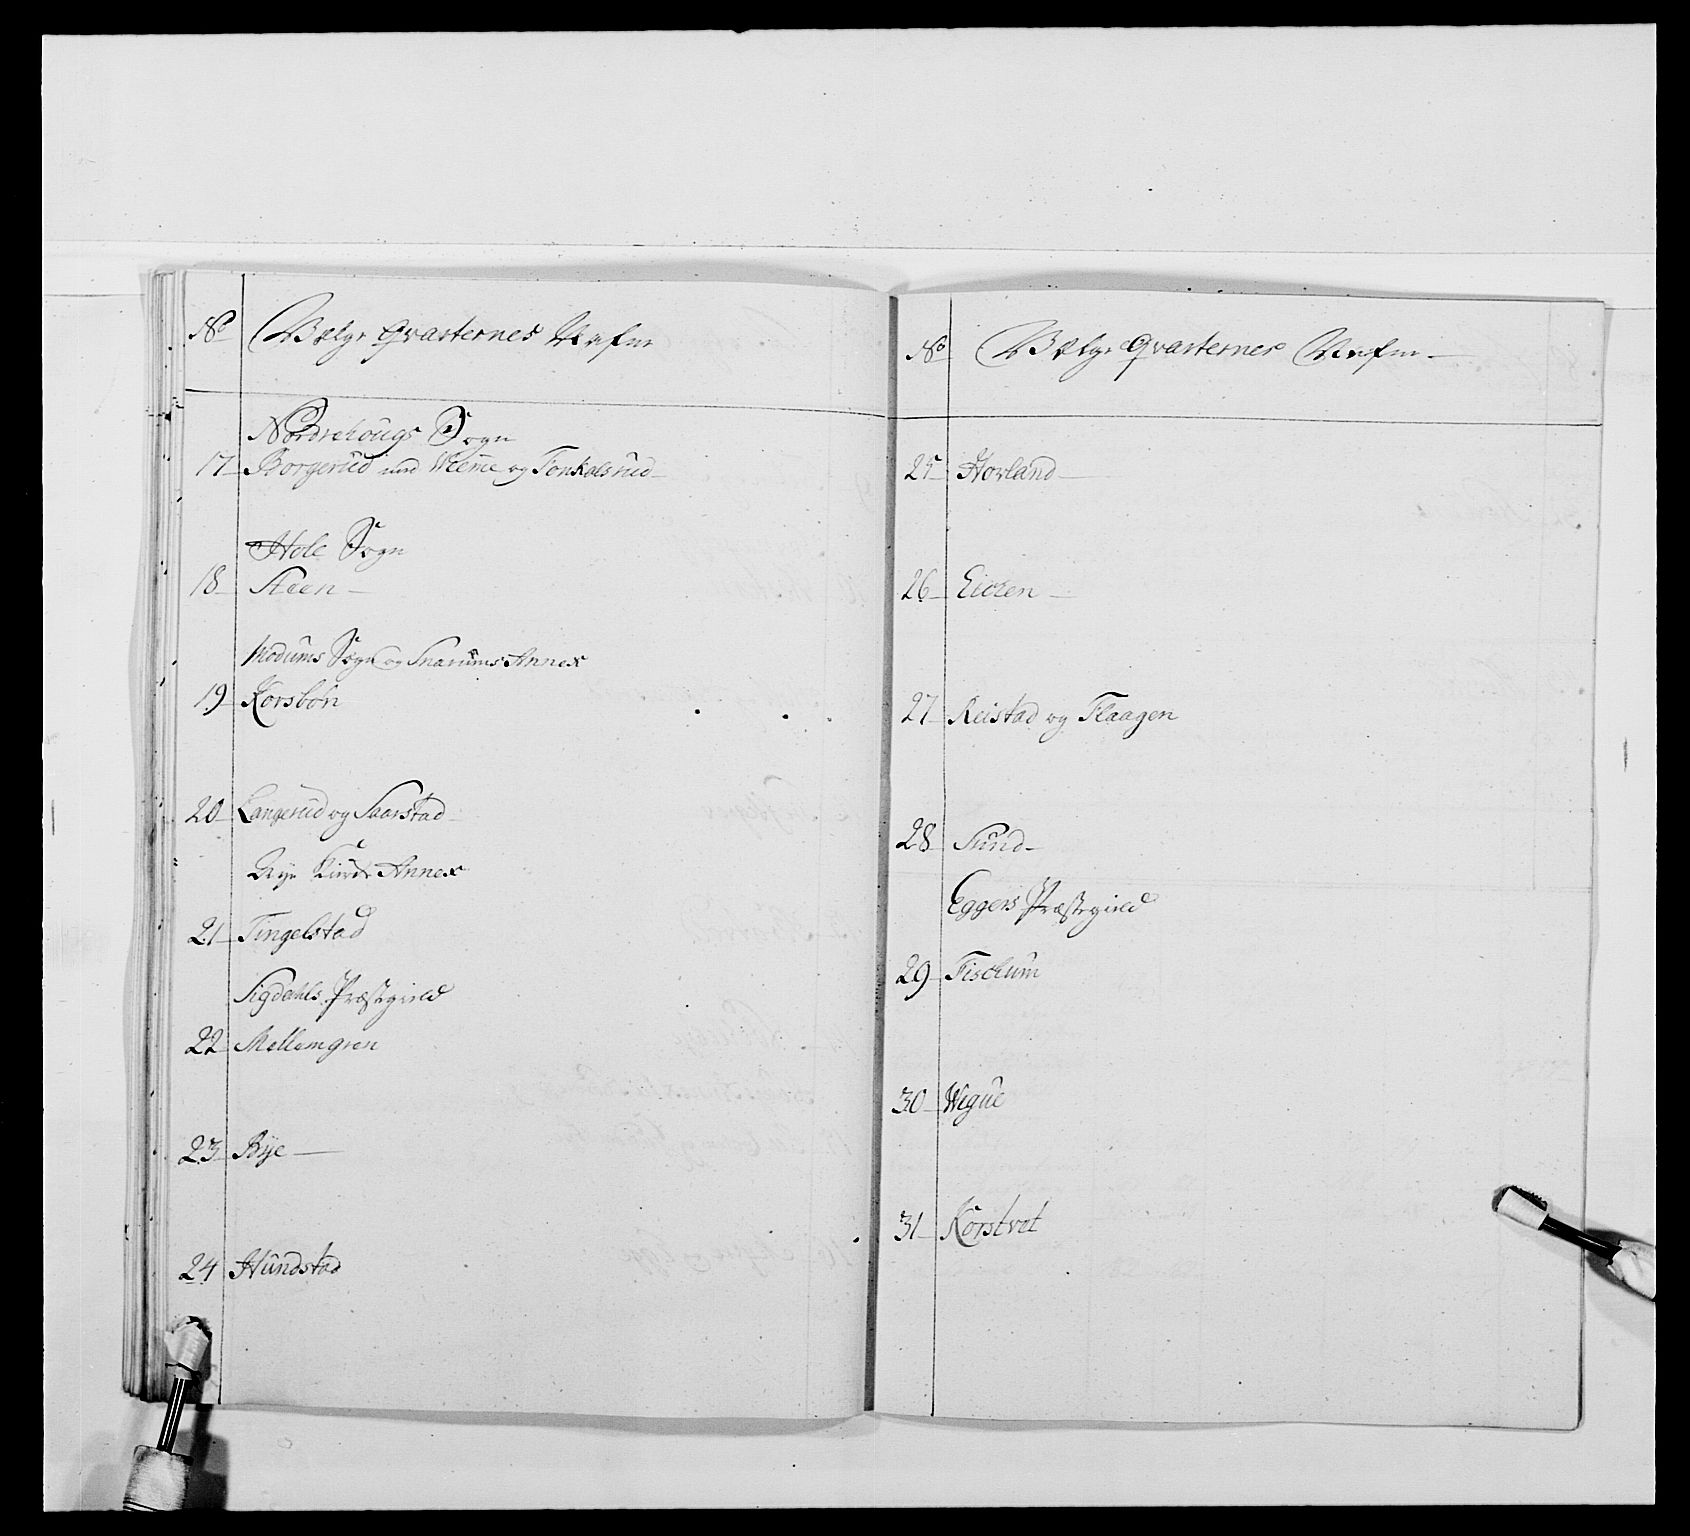 No Bølge Qvarternes Nafne
Nordrehougs Sogn
17 Borgerud med Weeme og Tonkelsrud
Hole Sogn
18 Steen
Modums Sogn og Snarums Annex
19 Korsbøn
20 Langerud og Saarstad
Nye Kirke Annex
21 Tingelstad
Sigdahls Præstegield
22 Mellemgren
23 Bye
24 Hundstad
No Bølge Qvarternes Nafne
25 Hovland
26 Eicren
27 Reistad og Flaagen
28 Sund
Eggers Præstegield
29 Fischum
30 Wegue
31 Korstvet